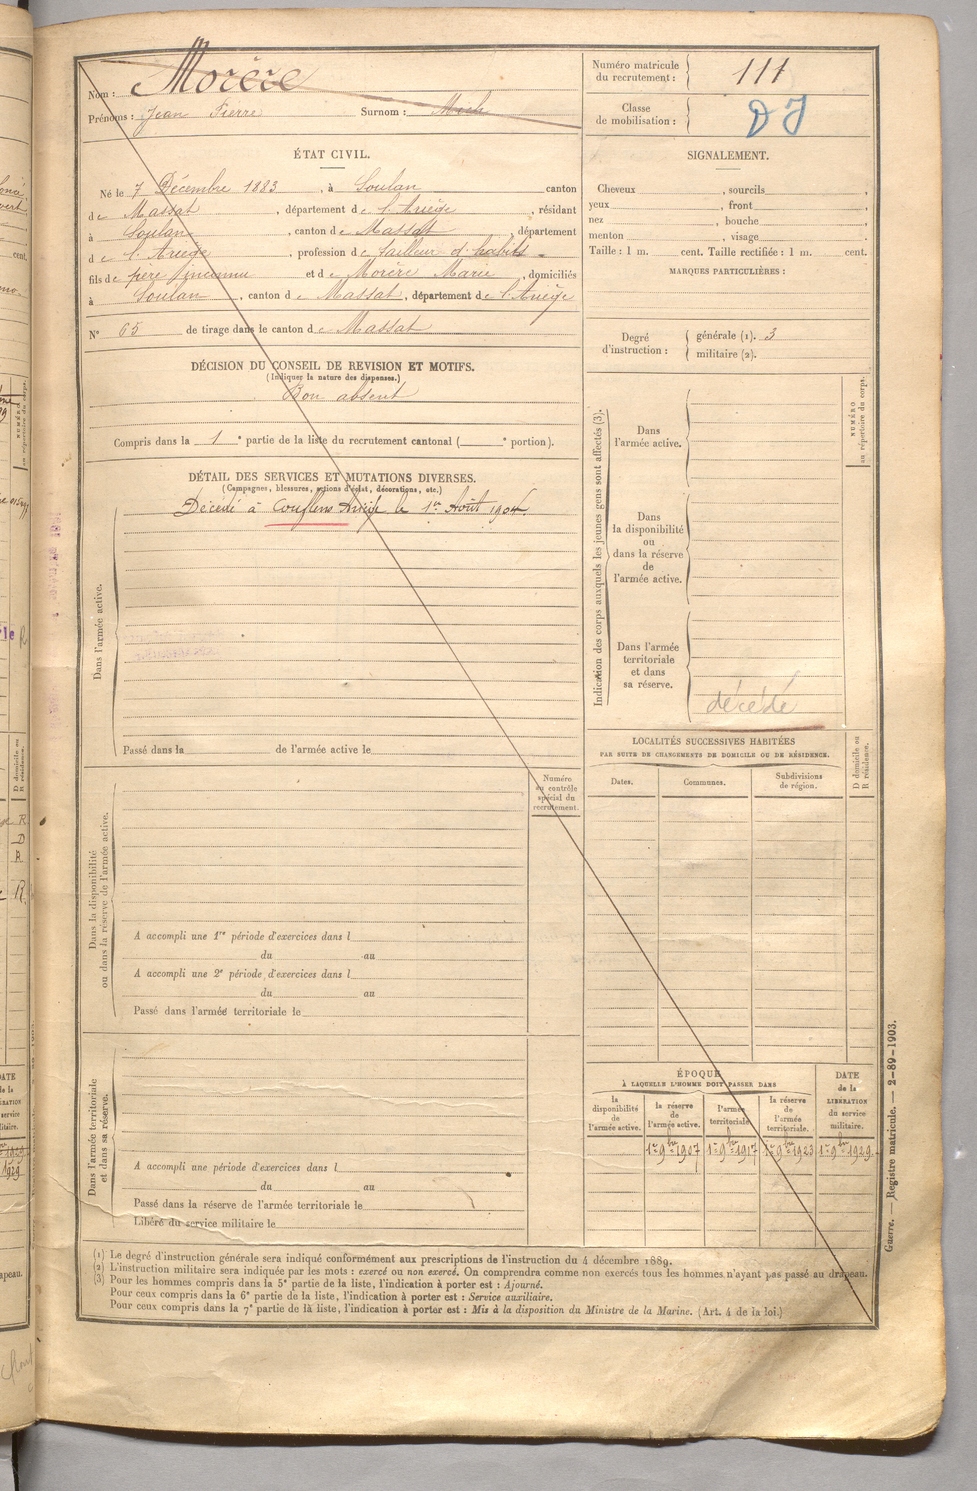 Nom : Morère
Prénoms : Jean Pierre Surnom :
Numéro matricule du recrutement : 111
Classe de mobilisation : DJ
ÉTAT CIVIL.
Né le 7 Décembre 1883, à Soulan canton
de Massat, département de l'Ariège, résidant
à Soulan, canton de Massat, département
de l'Ariège, profession de tailleur d'habits
fils de père inconnu et de Morère Marie, domiciliés
à Soulan, canton de Massat, département de l'Ariège
N° 65 de tirage dans le canton de Massat
SIGNALEMENT.
Cheveux , sourcils ,
yeux , front ,
nez , bouche ,
menton , visage
Taille : 1 m. cent. Taille rectifiée : 1 m. cent.
MARQUES PARTICULIÈRES :
Degré d'instruction : générale (1). 3
militaire (2).
DÉCISION DU CONSEIL DE REVISION ET MOTIFS.
(Indiquer la nature des dispenses.)
Bon absent
Compris dans la 1e partie de la liste du recrutement cantonal ( e portion).
DÉTAIL DES SERVICES ET MUTATIONS DIVERSES.
(Campagnes, blessures, actions d'éclat, décorations, etc.)
Décédé à Couflens Ariège le 1er Août 1904.
Dans l'armée active.
Passé dans la de l'armée active le
Dans la disponibilité
ou dans la réserve de l'armée active.
Numéro
au contrôle
spécial du
recrutement.
A accompli une 1re période d'exercices dans l
du au
A accompli une 2e période d'exercices dans l
du au
Passé dans l'armée territoriale le
Dans l'armée territoriale
et dans sa réserve.
A accompli une période d'exercices dans l
du au
Passé dans la réserve de l'armée territoriale le
Libéré du service militaire le
Indication des corps auxquels les jeunes gens sont affectés (3).
NUMÉRO
au répertoire du corps.
Dans
l'armée active.
Dans
la disponibilité
ou
dans la réserve
de
l'armée active.
Dans l'armée
territoriale
et dans
sa réserve.
décédé
LOCALITÉS SUCCESSIVES HABITÉES
PAR SUITE DE CHANGEMENTS DE DOMICILE OU DE RÉSIDENCE.
D domicile ou
R résidence.
Dates. Communes. Subdivisions
de région.
ÉPOQUE
À LAQUELLE L'HOMME DOIT PASSER DANS
la
disponibilité
de
l'armée active.
la réserve
de
l'armée active.
l'armée
territoriale.
la réserve
de
l'armée
territoriale.
DATE
de la
LIBÉRATION
du service
militaire.
1er 9bre 1907 1er 9bre 1917 1er 9bre 1923 1er 9bre 1929
(1) Le degré d'instruction générale sera indiqué conformément aux prescriptions de l'instruction du 4 décembre 1889.
(2) L'instruction militaire sera indiquée par les mots : exercé ou non exercé. On comprendra comme non exercés tous les hommes n'ayant pas passé au drapeau.
(3) Pour les hommes compris dans la 5e partie de la liste, l'indication à porter est : Ajourné.
Pour ceux compris dans la 6e partie de la liste, l'indication à porter est : Service auxiliaire.
Pour ceux compris dans la 7e partie de la liste, l'indication à porter est : Mis à la disposition du Ministre de la Marine. (Art. 4 de la loi.)
Guerre. — Registre matricule. — 2-89-1903.